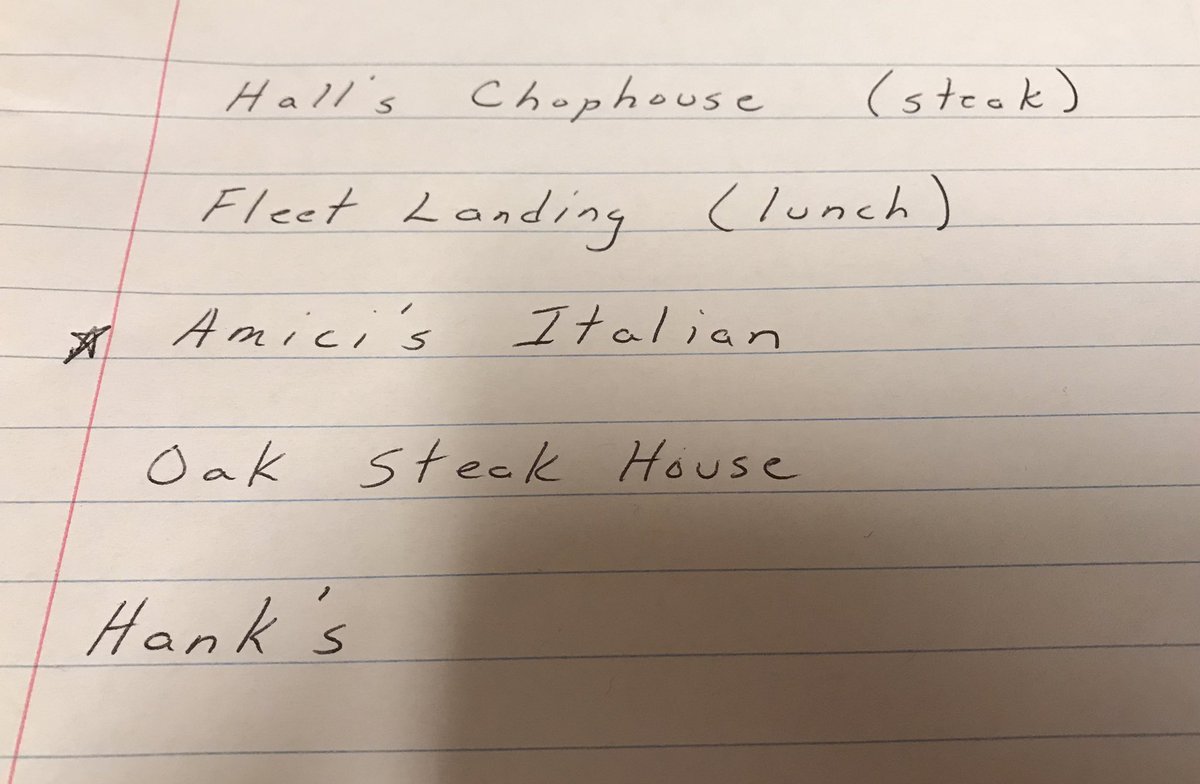 Hall's Chophouse (steak)
Fleet Landing (lunch)
☆ Amici's Italian
Oak Steak House
Hank's